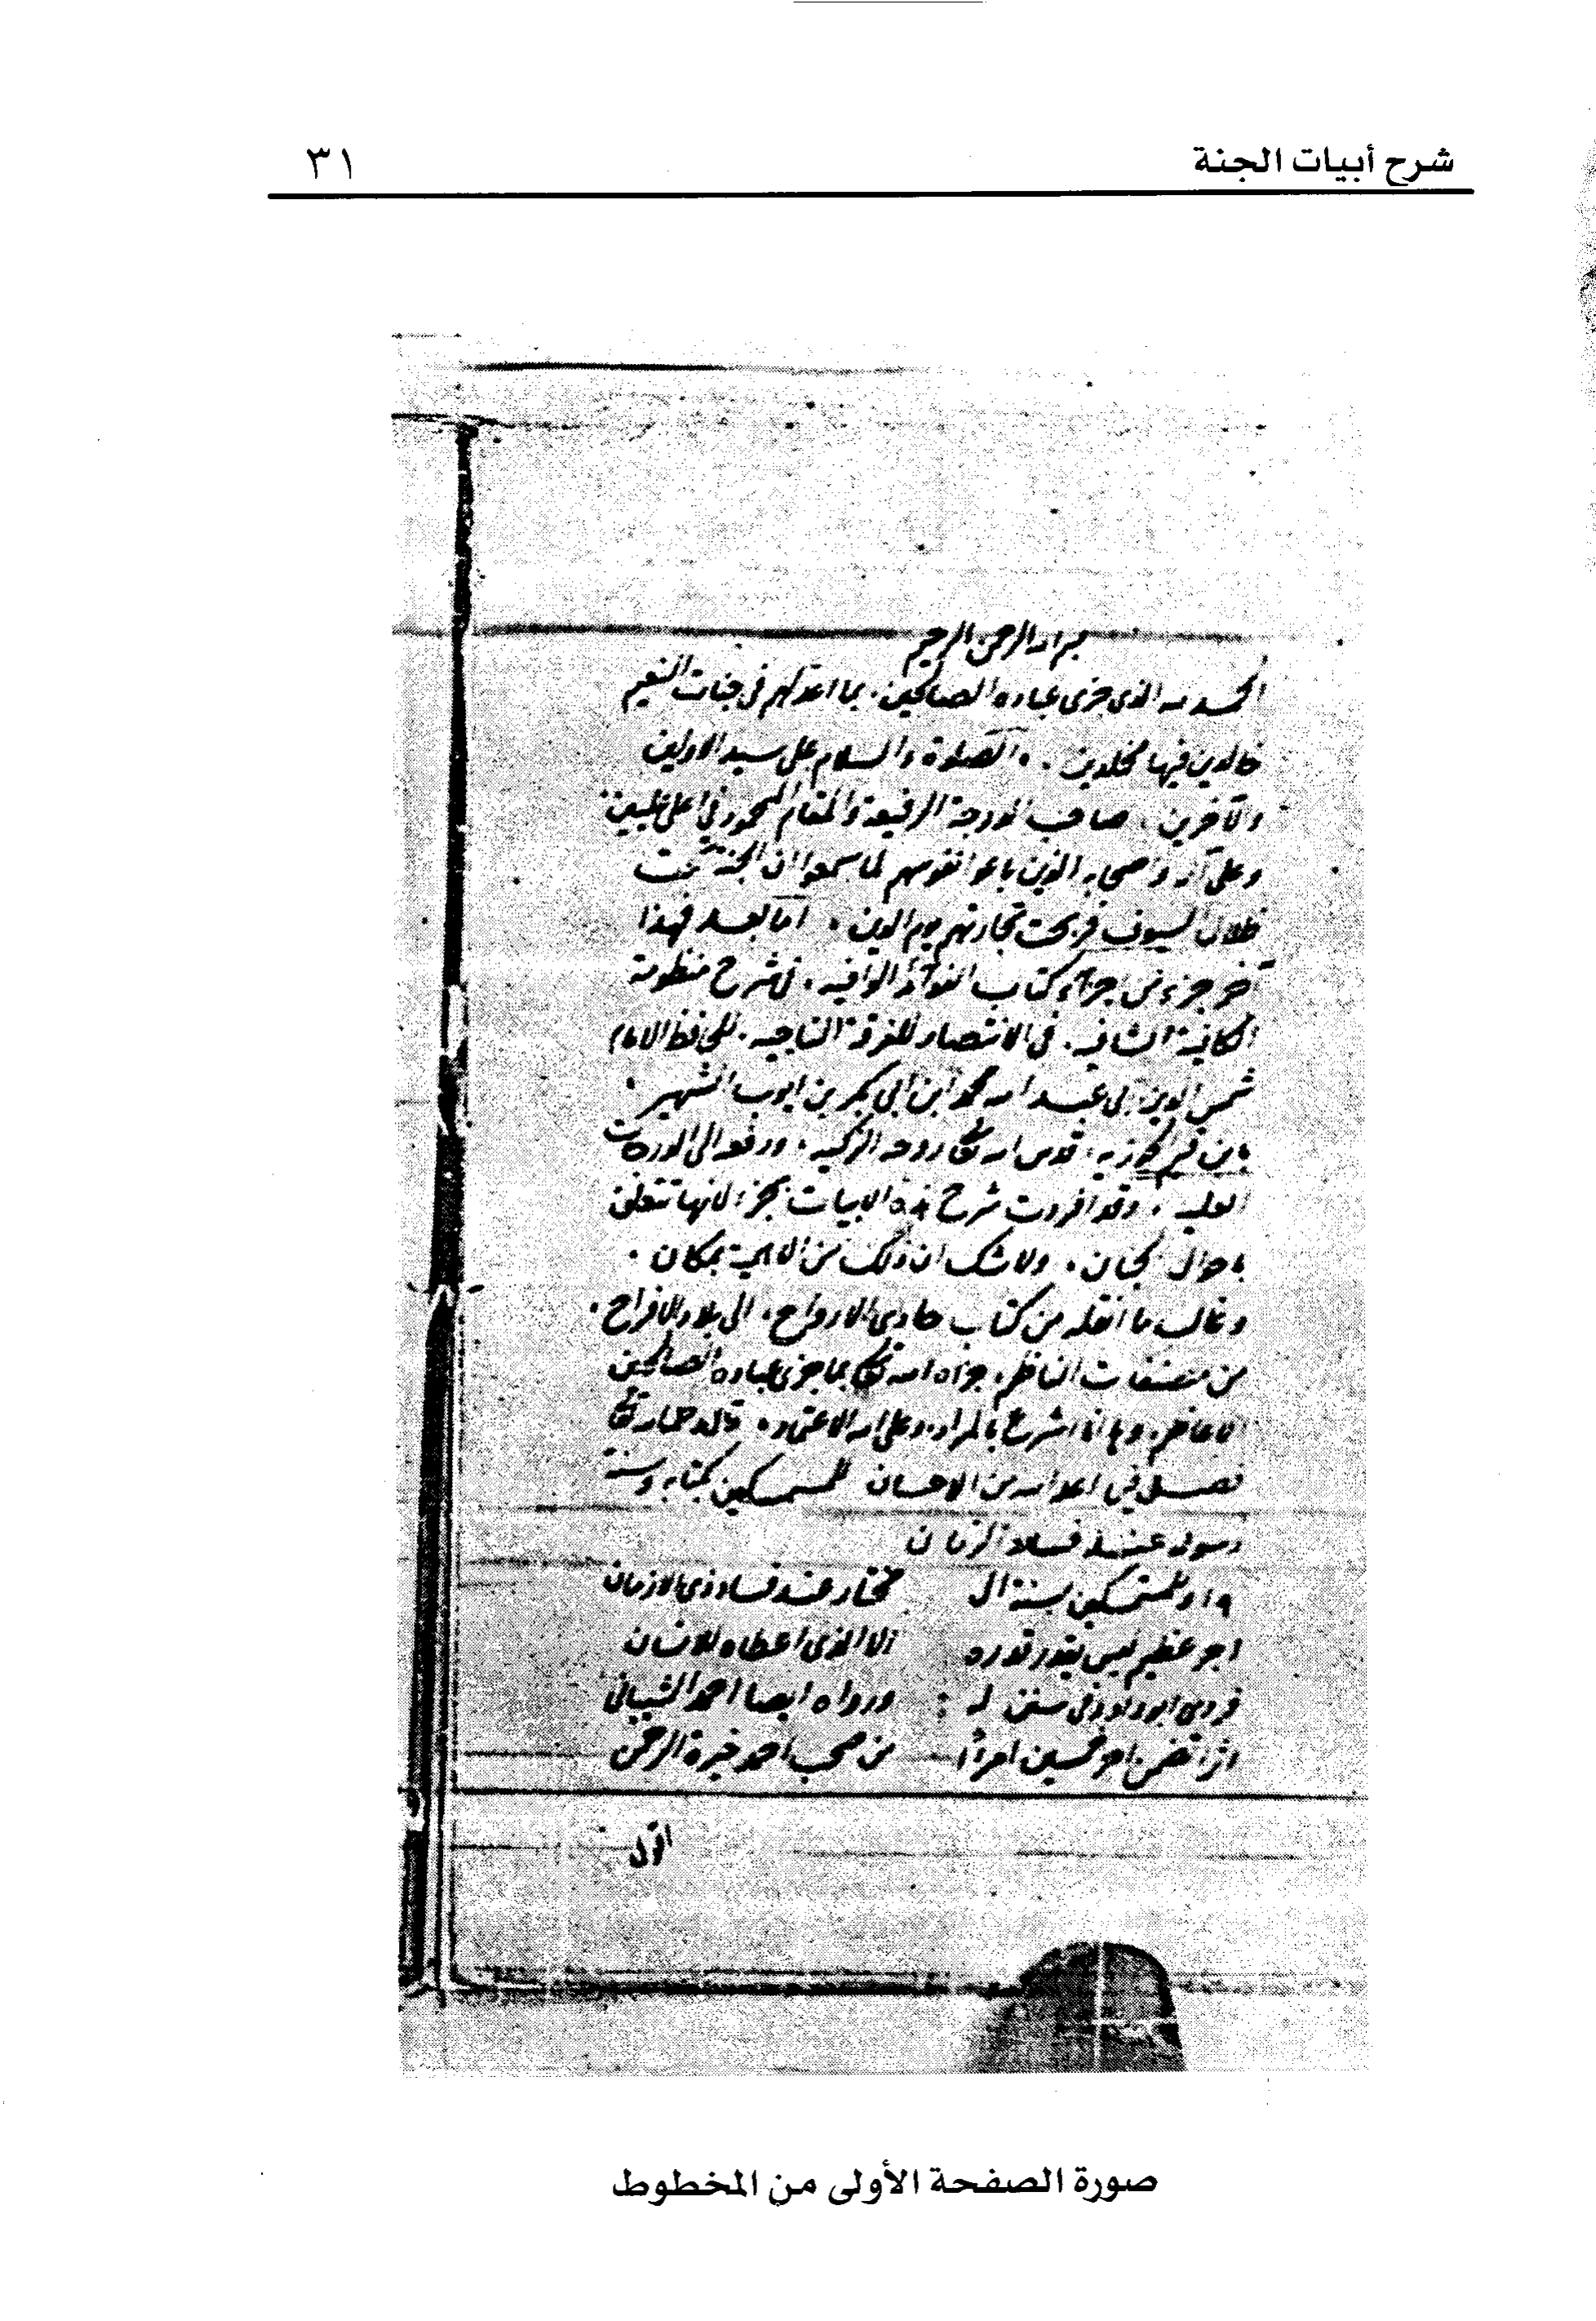 شرح أبيات الجنة ٣١
بسم الله الرحمن الرحيم
الحمد لله الذي جزى عباده الصالحين. بما اعد لهم في جنات النعيم
خالدين فيها مخلدين. والصلوة والسلام على سيد الاولين
والآخرين. صاحب الدرجة الرفيعة والمقام المحمود في اعلى عليين
وعلى آله واصحابه الذين باعوا نفوسهم لما سمعوا ان الجنة تحت
ظلال السيوف فربحت تجارتهم يوم الدين. اما بعد فهذا
آخر جزء من اجزاء كتاب الفوائد الوافيه. في شرح منظومة
الكافية الشافيه. في الانتصار للفرقة الناجيه. للحافظ الامام
شمس الدين ابي عبد الله محمد ابن ابي بكر بن ايوب الشهير.
بابن قيم الجوزيه. قدس الله تعالى روحه الزكيه. ورفعه الى الدرجات
العليه. وقد افردت شرح هذه الابيات بجزء لانها تتعلق
باحوال الجنان. ولا شك ان ذلك من الاهمية بمكان.
وغالب ما انقله من كتاب حادي الارواح. الى بلاد الافراح.
من مصنفات الناظم. جزاه الله تعالى بما جزى عباده الصالحين
الاعاظم. وها انا اشرع بالمراد. وعلى الله الاعتماد. قال رحمه الله تعالى
فصل في ما اعد الله من الاحسان للمتمسكين بكتابه وسنة
رسوله عند فساد الزمان
هذا وللمتمسكين بسنة ال مختار عند فساد ذي الازمان
اجر عظيم ليس يقدر قدره الا الذي اعطاه للانسان
فروى ابو داود في سنن له ورواه ايضا احمد الشيباني
اثرا تضمن اجر خمسين امرأ من صحب احمد خيرة الرحمن
اقول
صورة الصفحة الأولى من المخطوط